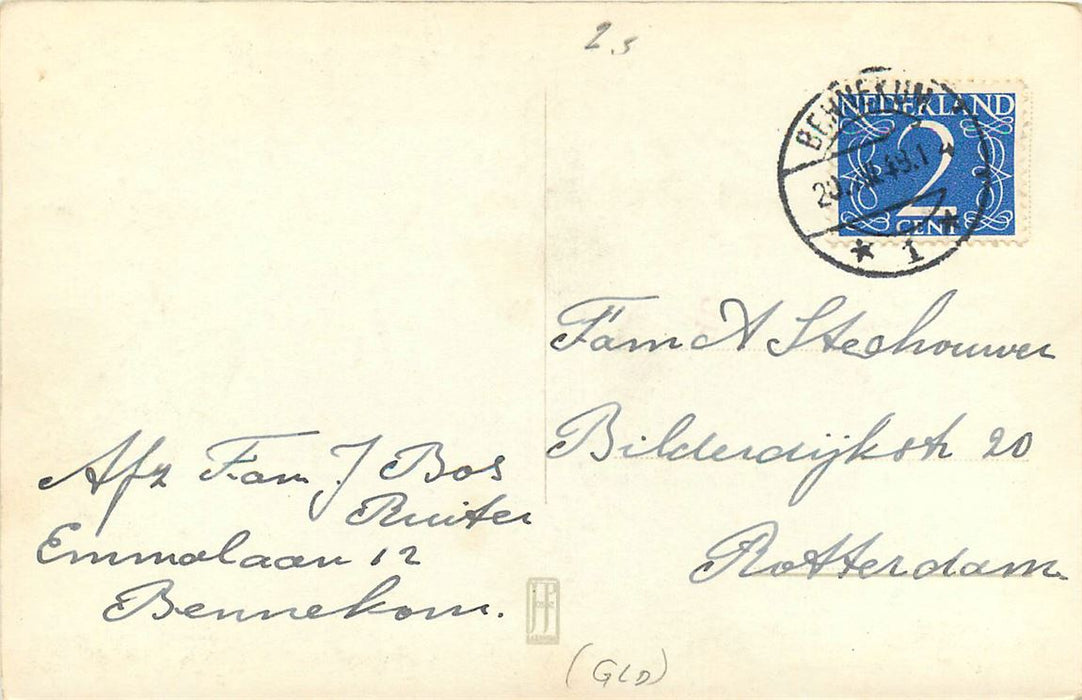 2.5
BENNEKOM
20.XII.48.1
1
NEDERLAND
2
CENT
Fam A Stechouwer
Bilderdijkstr 20
Rotterdam
Afz Fam J Bos
Ruiter
Emmalaan 12
Bennekom.
JP
(GLD)